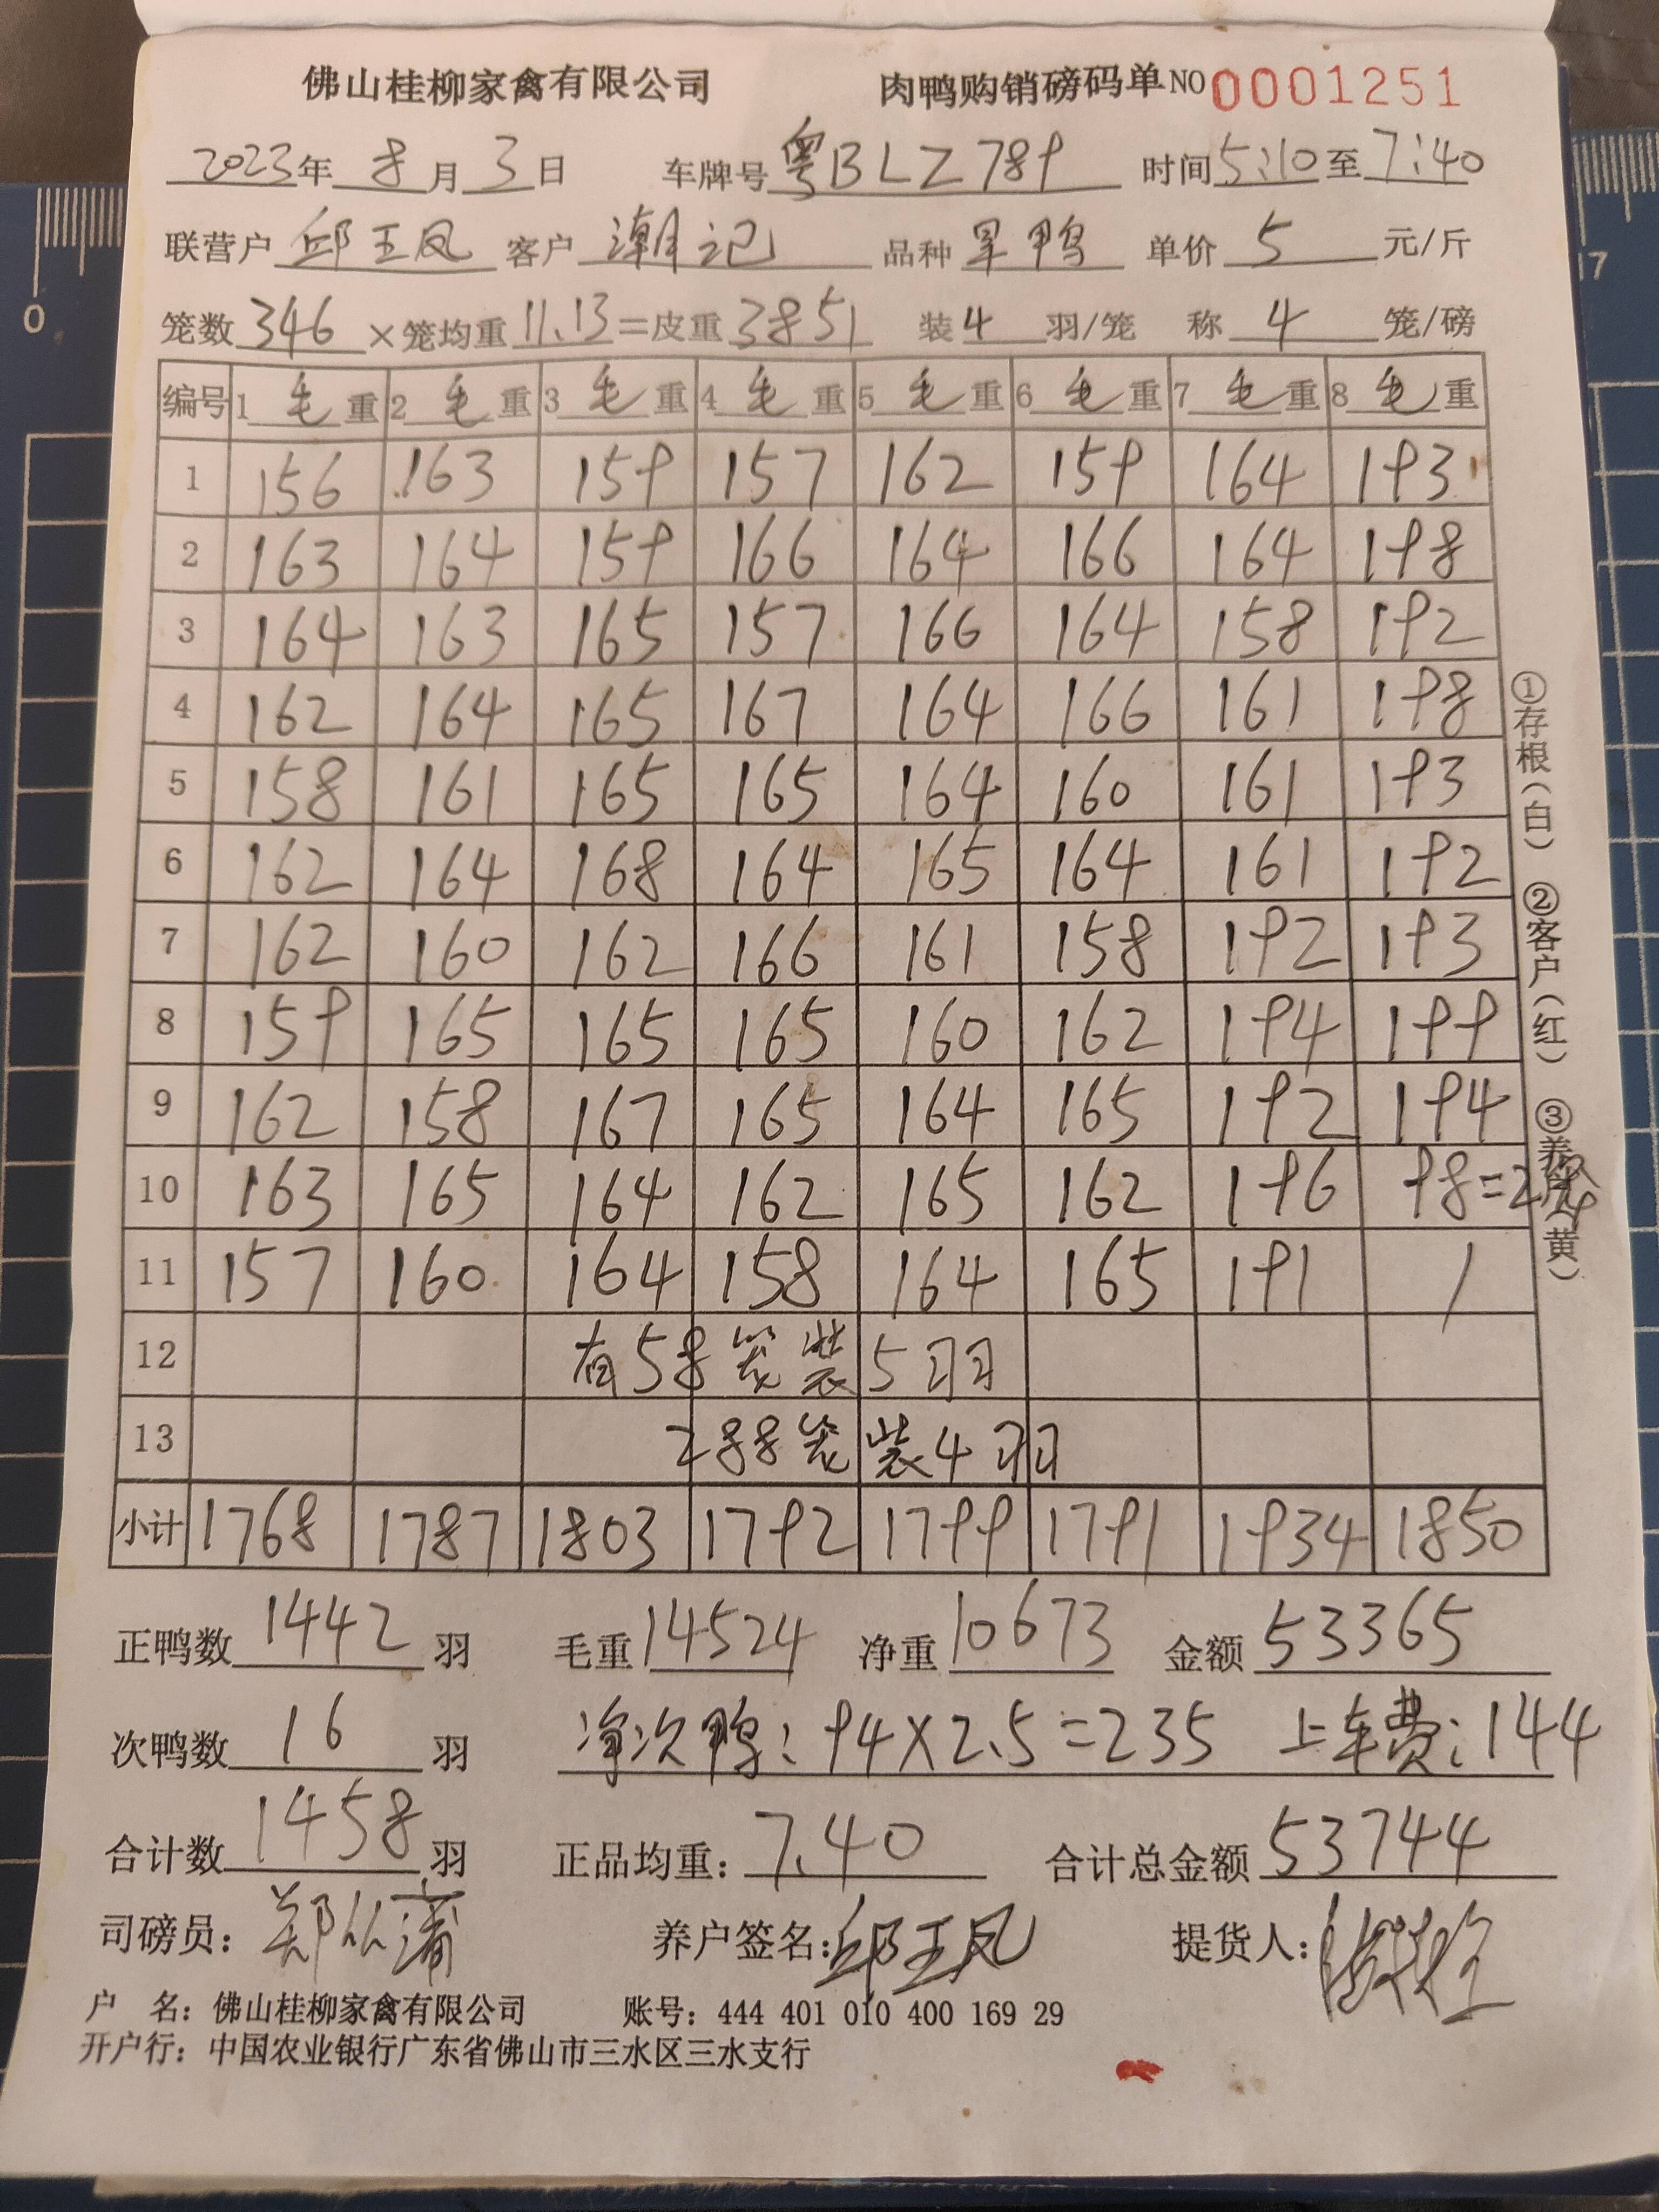 佛山桂柳家禽有限公司 肉鸭购销磅码单 NO 0001251
2023年 8月 3日 车牌号 粤BLZ789 时间 5:10 至 7:40
联营户 邱王凤 客户 潮记 品种 旱鸭 单价 5 元/斤
笼数 346 ×笼均重 11.13 =皮重 3851 装 4 羽/笼 称 4 笼/磅
编号 1 毛 重 2 毛 重 3 毛 重 4 毛 重 5 毛 重 6 毛 重 7 毛 重 8 毛 重
1 156 163 159 157 162 159 164 193
2 163 164 159 166 164 166 164 198
3 164 163 165 157 166 164 158 192
4 162 164 165 167 164 166 161 198
5 158 161 165 165 164 160 161 193
6 162 164 168 164 165 164 161 192
7 162 160 162 166 161 158 192 193
8 159 165 165 165 160 162 194 199
9 162 158 167 165 164 165 192 194
10 163 165 164 162 165 162 196 98=2
11 157 160 164 158 164 165 191 /
12 有58笼装5羽
13 288笼装4羽
小计 1768 1787 1803 1792 1799 1791 1934 1850
正鸭数 1442 羽 毛重 14524 净重 10673 金额 53365
次鸭数 16 羽 净次鸭: 94×2.5=235 上车费:144
合计数 1458 羽 正品均重: 7.40 合计总金额 53744
司磅员: 养户签名: 邱王凤 提货人:
户 名: 佛山桂柳家禽有限公司 账号: 444 401 010 400 169 29
开户行: 中国农业银行广东省佛山市三水区三水支行
①存根(白) ②客户(红) ③养户(黄)